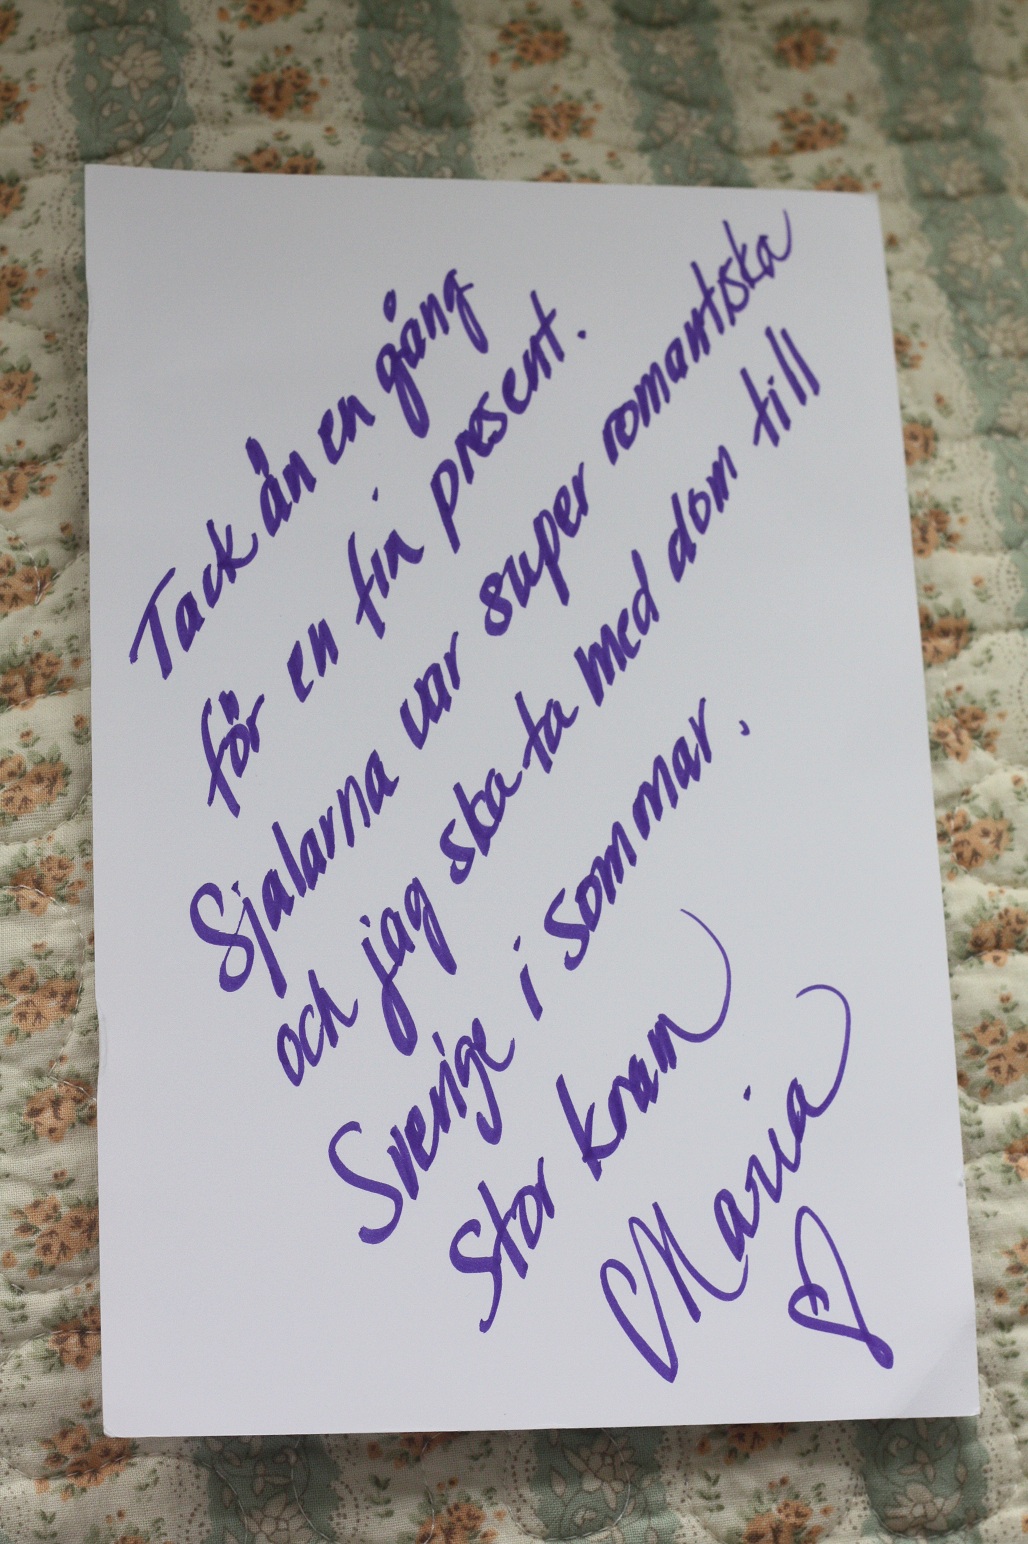 Tack än en gång
för en fin present.
Sjalarna var super romantiska
och jag ska ta med dom till
Sverige i sommar.
Stor kram
Maria